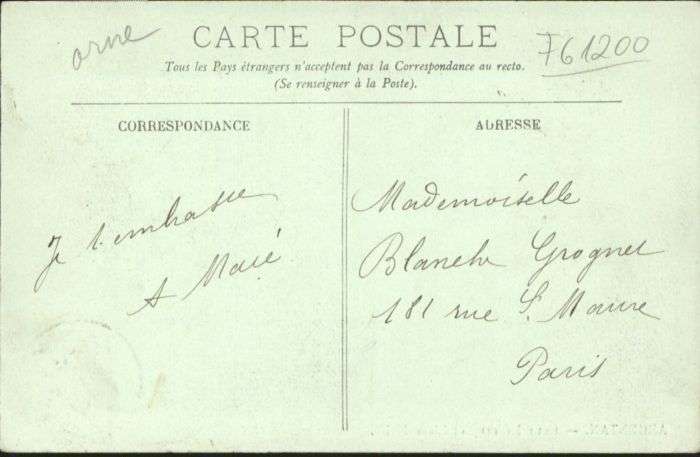 orne
CARTE POSTALE
F61200
Tous les Pays étrangers n'acceptent pas la Correspondance au recto.
(Se renseigner à la Poste).
CORRESPONDANCE
ADRESSE
Je t'embrasse
A Macé
Mademoiselle
Blanche Grognet
181 rue St. Maure
Paris